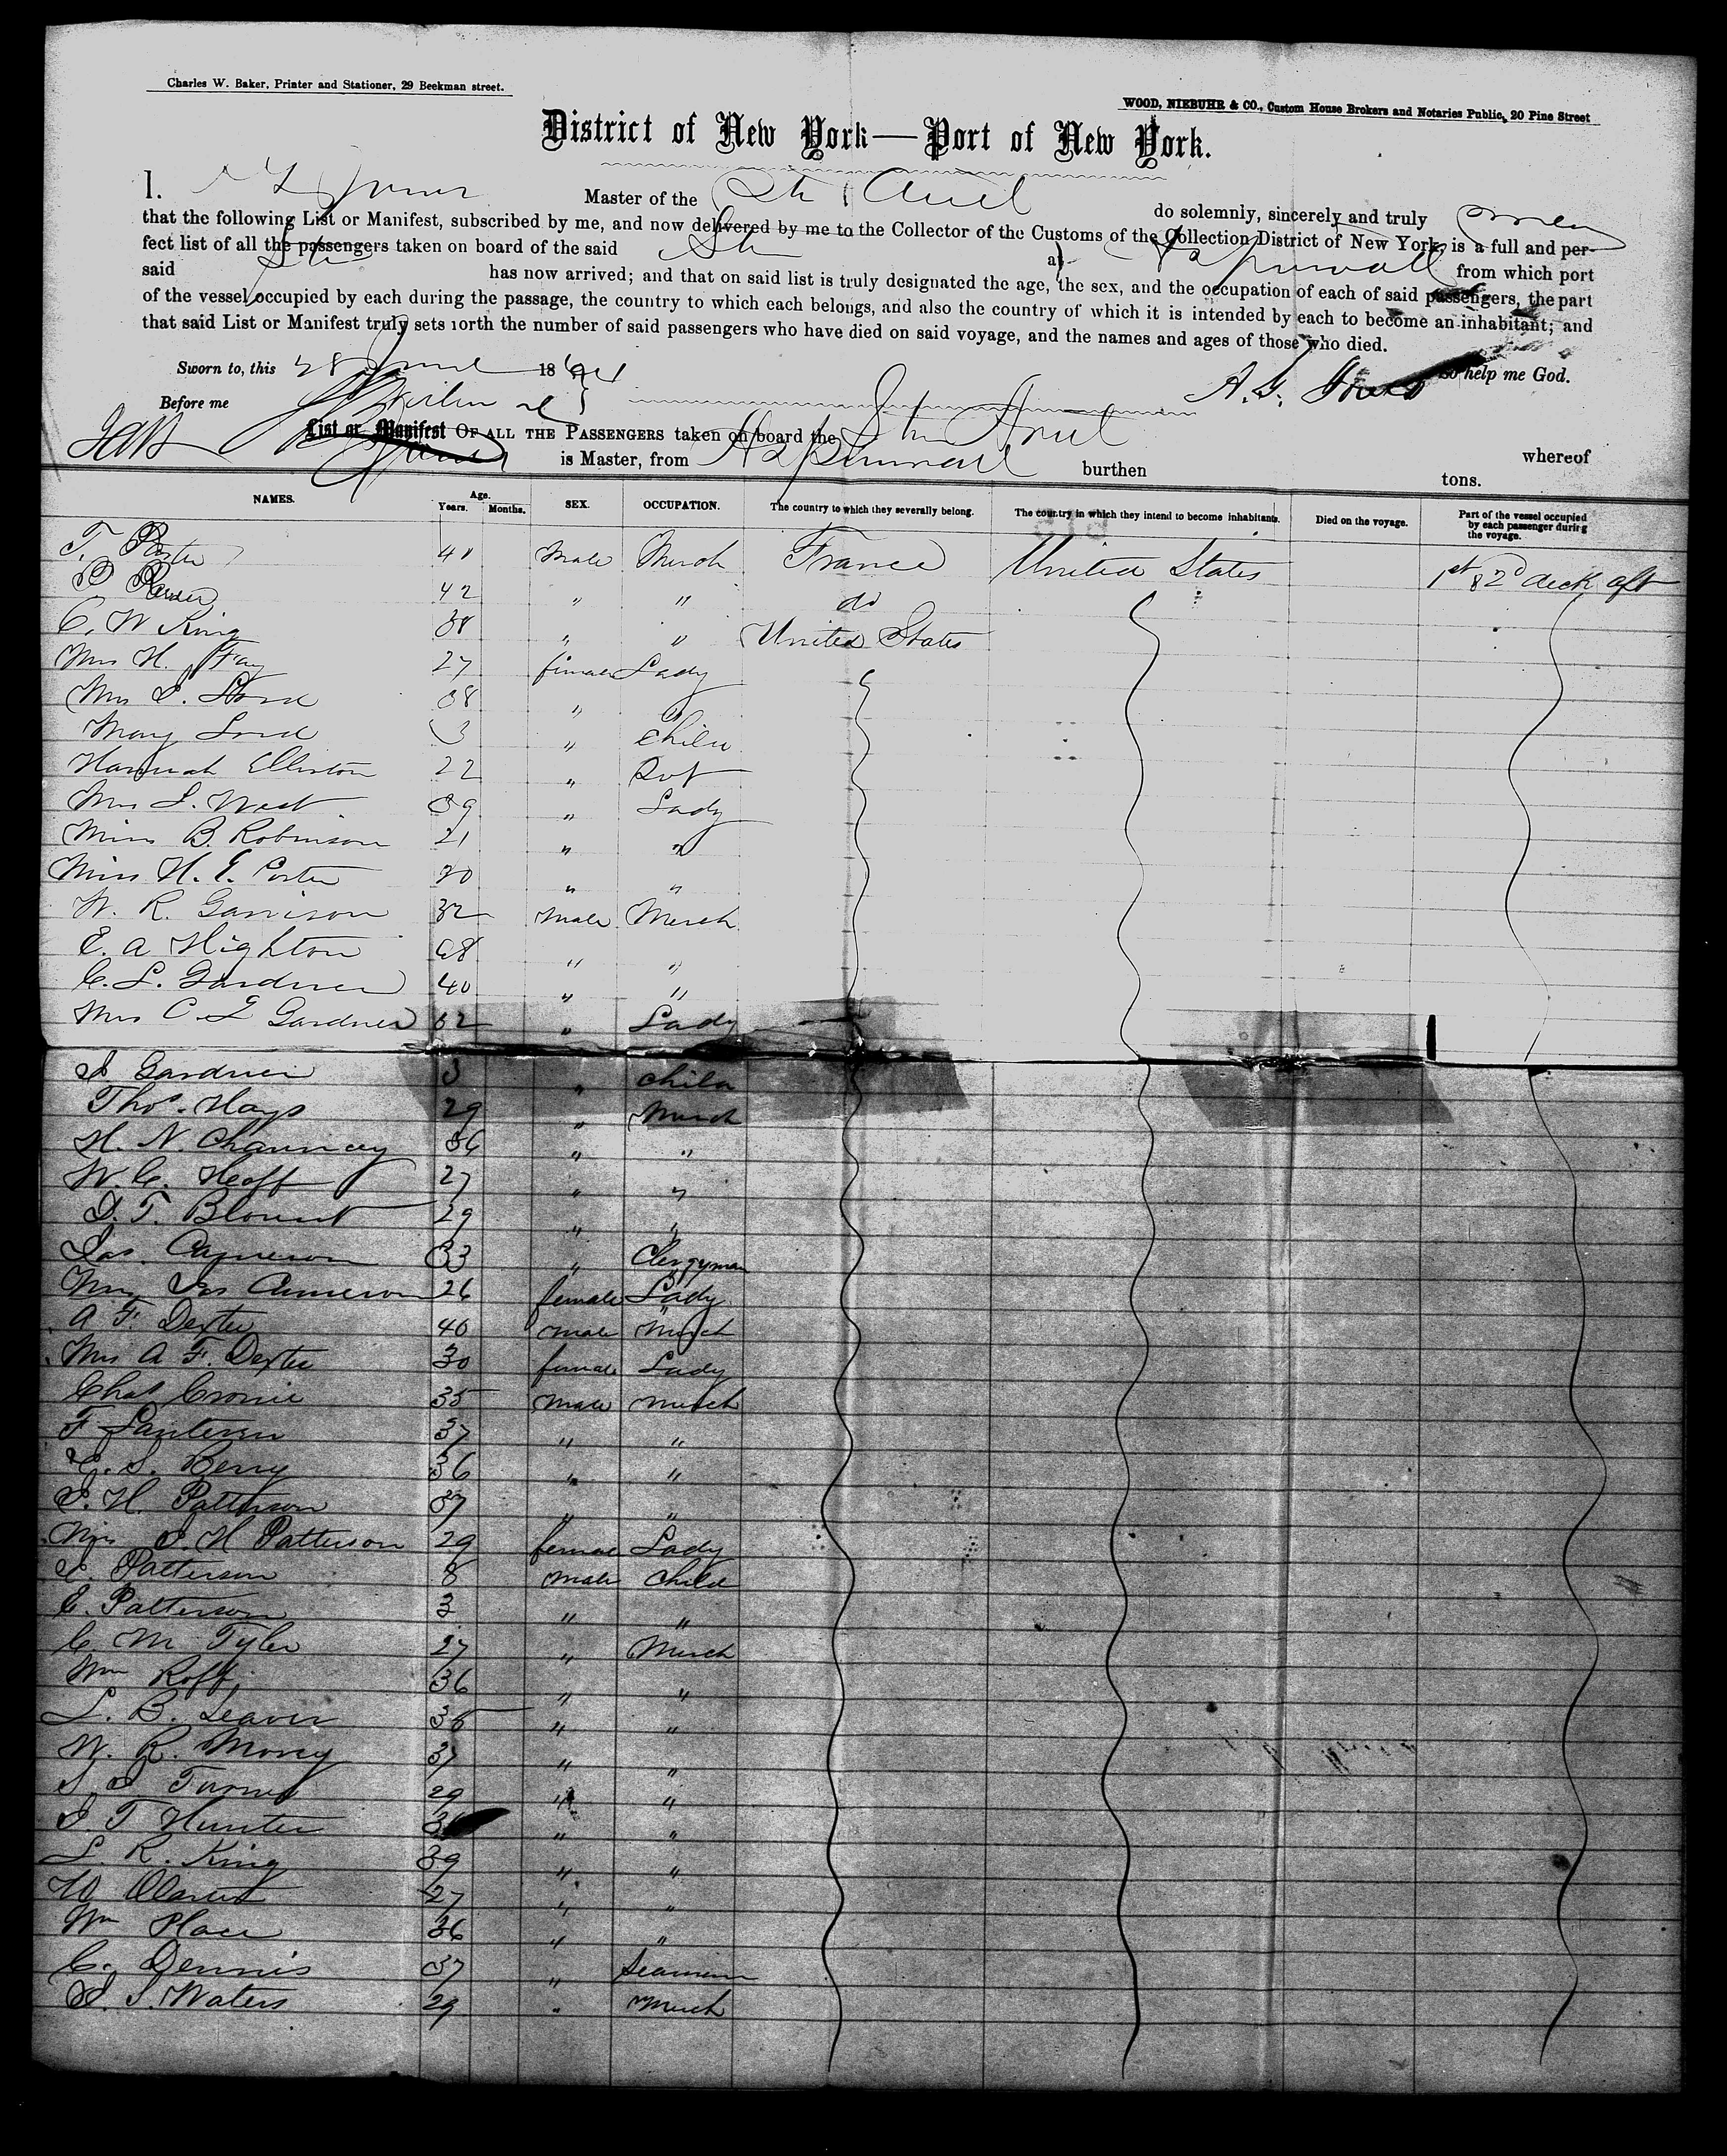 Charles W. Baker, Printer and Stationer, 29 Beekman street.
WOOD, NIEBUHR & CO., Custom House Brokers and Notaries Public, 20 Pine Street
District of New York—Port of New York.
I. Master of the Str Ariel do solemnly, sincerely and truly swear
that the following List or Manifest, subscribed by me, and now delivered by me to the Collector of the Customs of the Collection District of New York, is a full and per-
fect list of all the passengers taken on board of the said Str at Aspinwall from which port
said Str has now arrived; and that on said list is truly designated the age, the sex, and the occupation of each of said passengers, the part
of the vessel occupied by each during the passage, the country to which each belongs, and also the country of which it is intended by each to become an inhabitant; and
that said List or Manifest truly sets forth the number of said passengers who have died on said voyage, and the names and ages of those who died.
Sworn to, this 28 June 1864 So help me God.
Before me A. G.
List or Manifest OF ALL THE PASSENGERS taken on board the Str Ariel whereof
is Master, from Aspinwall burthen tons.
NAMES. Age. Years. Months. SEX. OCCUPATION. The country to which they severally belong. The country in which they intend to become inhabitants. Died on the voyage. Part of the vessel occupied by each passenger during the voyage.
T. Porter 41 Male Merch France United States 1st & 2d deck aft
42 " " do
C. W King 38 " " United States
Mrs H. Fay 27 female Lady
Mrs S. Lord 38 "
Mary Lord 3 " Child
Hannah Elliston 22 " Svt
Mrs S. West 39 " Lady
Miss B. Robinson 21 " "
Miss H. E. Porter 20 " "
W. R. Garrison 32 Male Merch
E. A Highton 28 " "
C. L. Gardner 40 " "
Mrs C. L Gardner 32 " Lady
J Gardner 3 " Child
Thos. Hays 29 " Merch
H. N. Chauncey 36 " "
W. C. Hoff 27 " "
J. T. Blount 29 " "
Jas. Cameron 33 " Clergyman
Mrs Jas Cameron 26 female Lady
A F. Dexter 40 Male Merch
Mrs A F. Dexter 30 female Lady
Chas Cronie 35 Male Merch
F 37 " "
S. Berry 36 " "
J. H. Patterson 37 " "
Mrs J. H Patterson 29 female Lady
J. Patterson 8 Male Child
E. Patterson 3 " "
C. M Tyler 27 " Merch
Wm Roff 36 " "
L. B. Leaver 35 " "
W. R. Morey 37 " "
S J Turner 29 " "
J. T Hunter 3 " "
L. R. King 39 " "
W 27 " "
Wm Place 36 " "
C. Dennis 37 " Seaman
J. S. Waters 29 " Merch